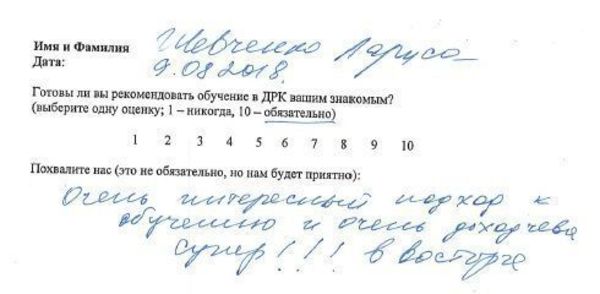 Имя и Фамилия Шевченко Лариса
Дата: 9.08.2018.
Готовы ли вы рекомендовать обучение в ДРК вашим знакомым?
(выберите одну оценку; 1 – никогда, 10 – обязательно)
1 2 3 4 5 6 7 8 9 10
Похвалите нас (это не обязательно, но нам будет приятно):
Очень интересный подход к
обучению и очень доходчево
супер!!! в восторге